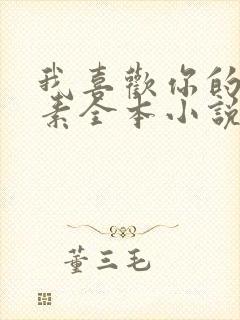 我喜歡你的
素全本小說
董三毛